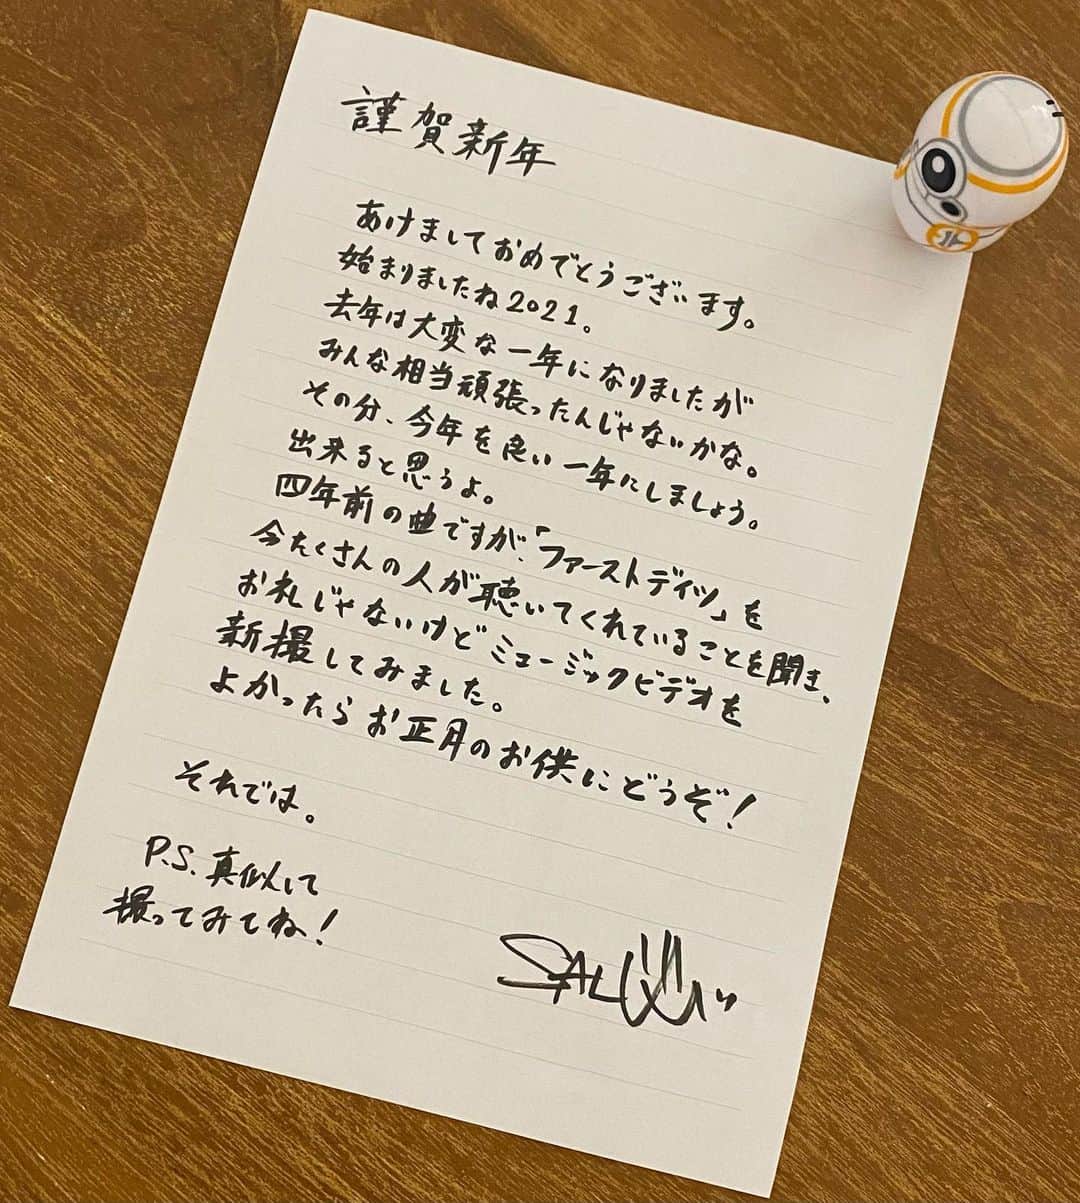 謹賀新年
あけましておめでとうございます。
始まりましたね2021。
去年は大変な一年になりましたが
みんな相当頑張ったんじゃないかな。
その分、今年を良い一年にしましょう。
出来ると思うよ。
四年前の曲ですが、「ファーストデイツ」を
今たくさんの人が聴いてくれていることを聞き、
お礼じゃないけどミュージックビデオを
新撮してみました。
よかったらお正月のお供にどうぞ!
それでは。
P.S. 真似して
撮ってみてね!
SALU